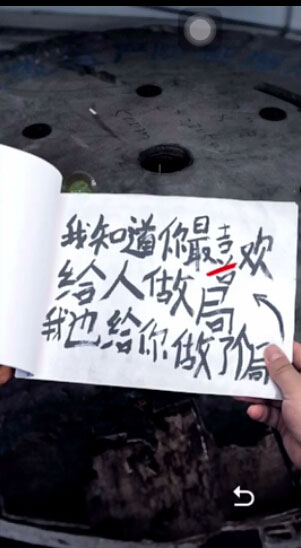 我知道你最喜欢
给人做局
我也给你做了侷